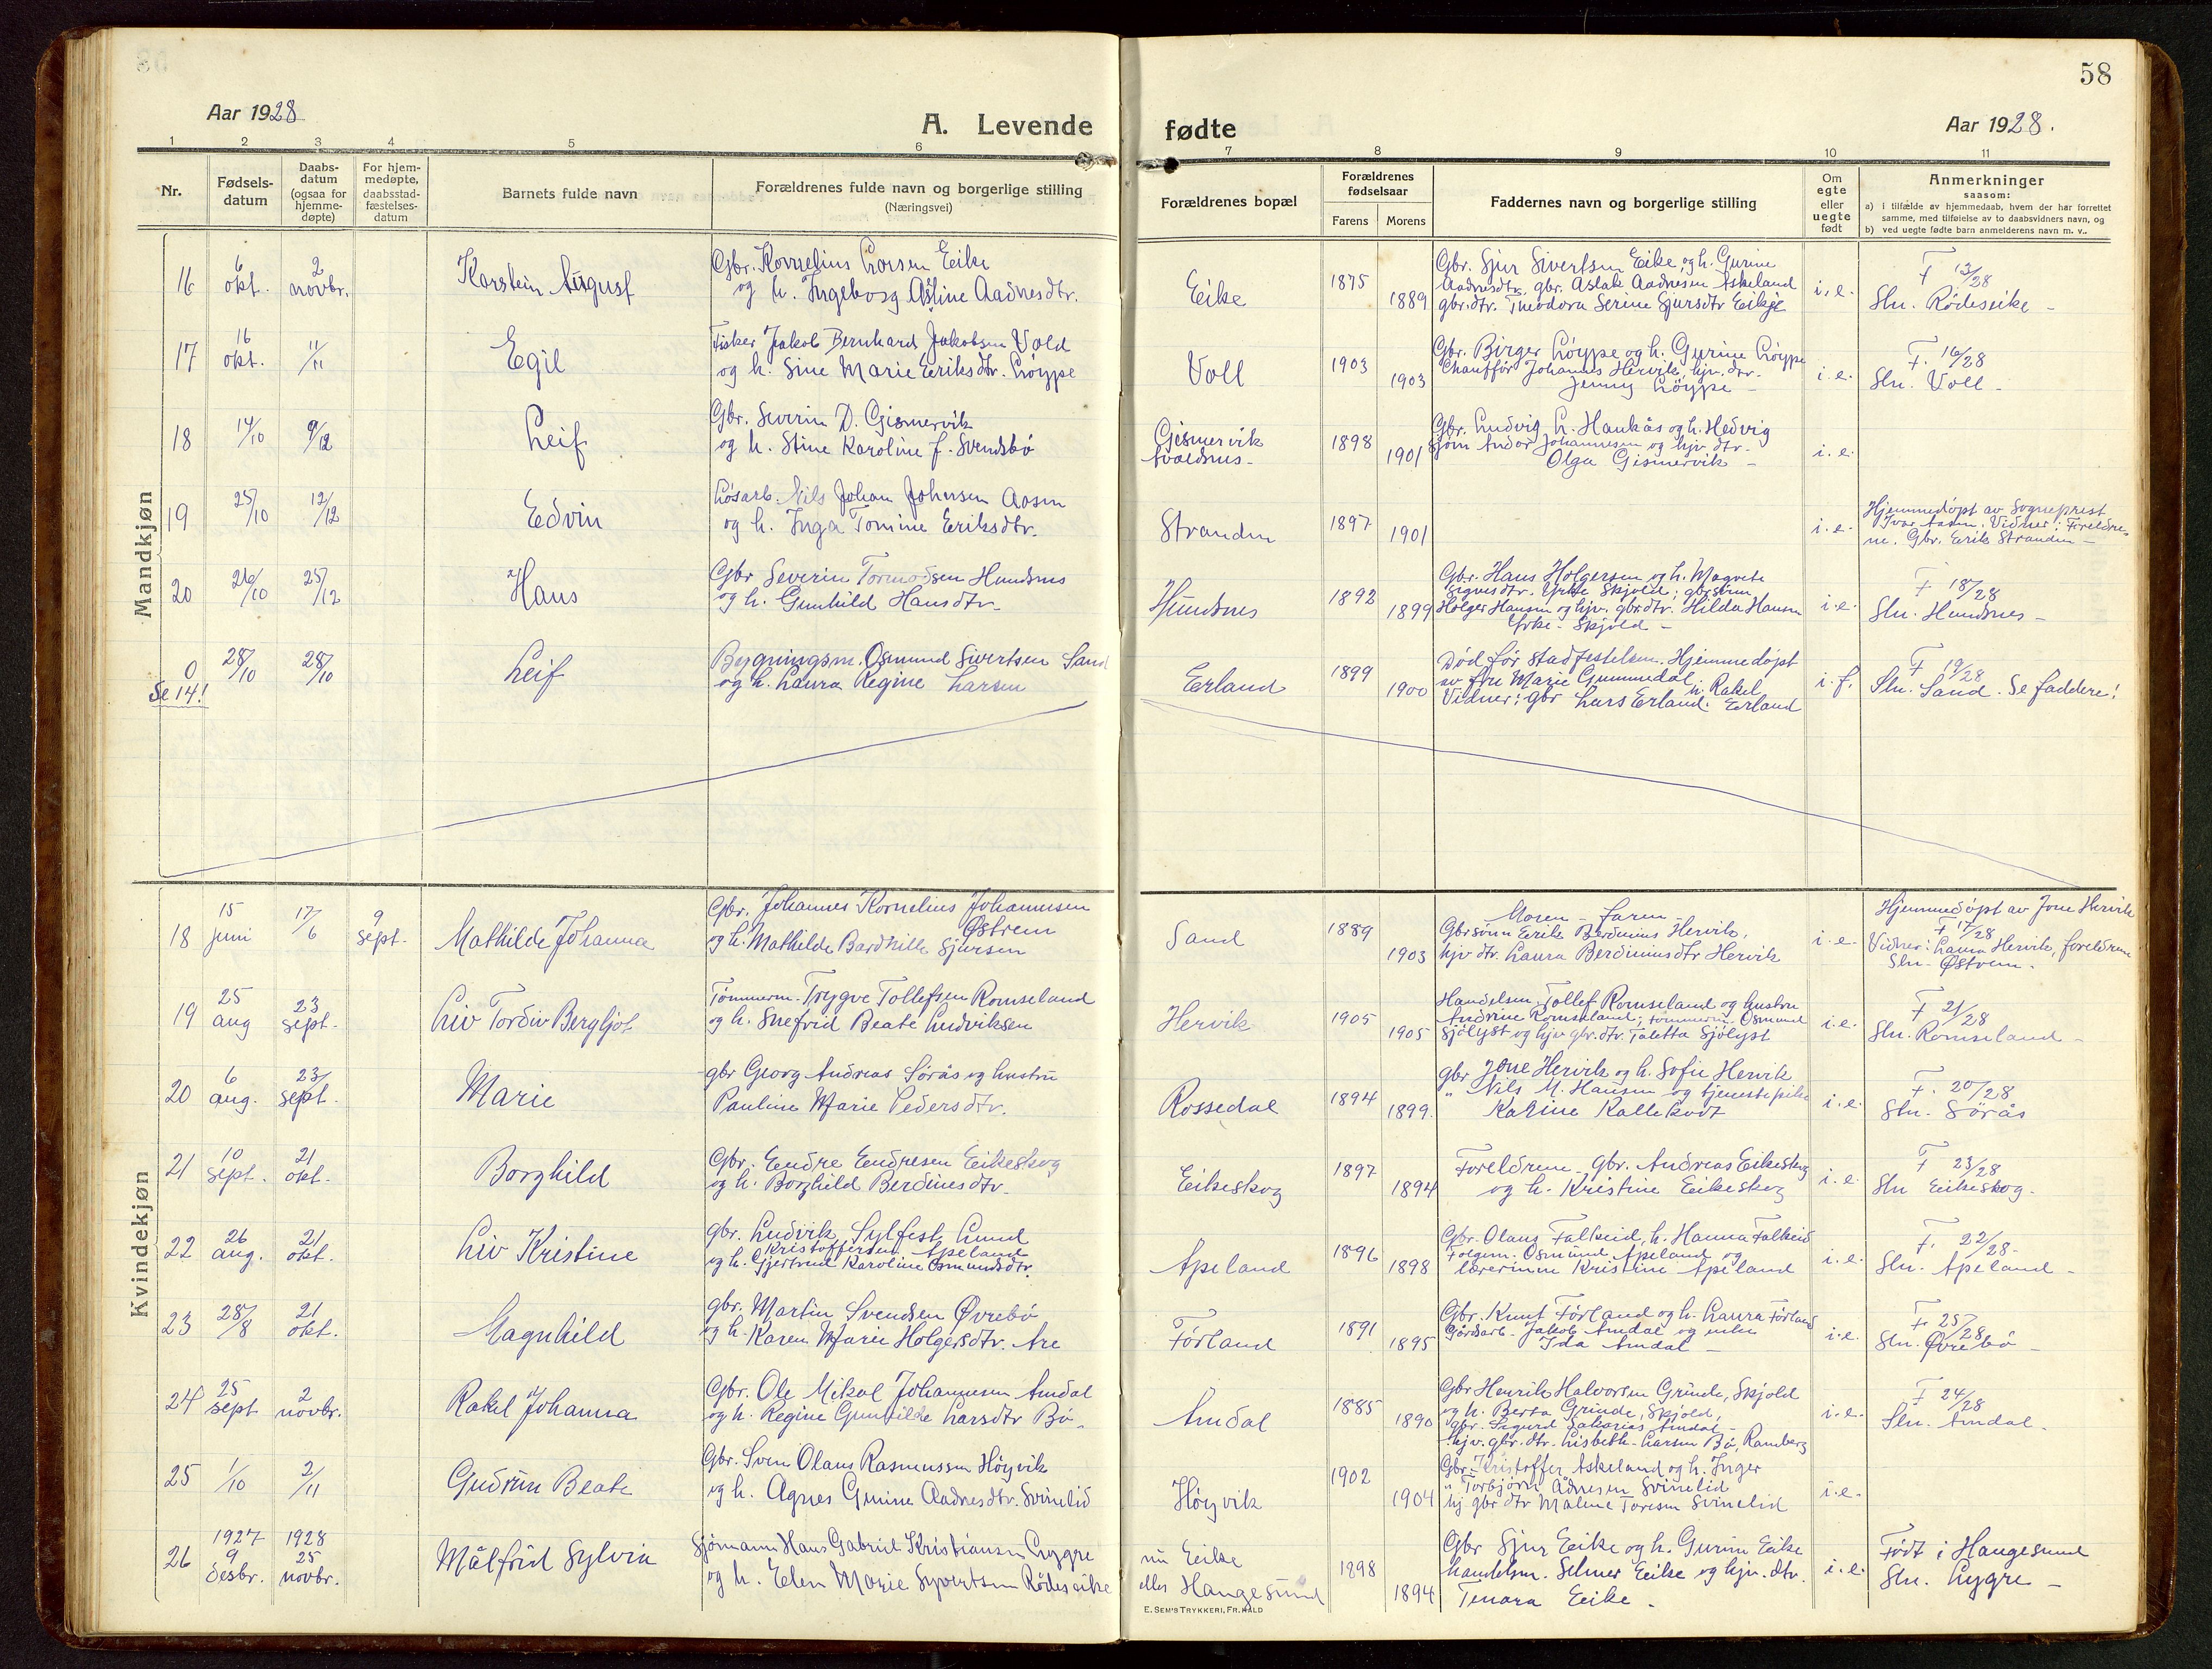 58
Aar 1928
A. Levende
fødte
Aar 1928.
1 2 3 4 5 6 7 8 9 10 11
Nr.
Fødsels-
datum
Daabs-
datum
(ogsaa for
hjemme-
døpte)
For hjem-
medøpte,
daabsstad-
fæstelses-
datum
Barnets fulde navn
Forældrenes fulde navn og borgerlige stilling
(Næringsvei)
Forældrenes bopæl
Forældrenes
fødselsaar
Farens Morens
Faddernes navn og borgerlige stilling
Om
egte
eller
uegte
født
Anmerkninger
saasom:
a) i tilfælde av hjemmedaab, hvem der har forrettet
samme, med tilføielse av to daabsvidners navn, og
b) ved uegte fødte barn anmelderens navn m. v..
Mandkjøn
16 6 okt. 2 novbr. Karstein August
Gbr. Kornelius Larsen Eike
og h. Ingeborg Astine Aadnesdtr.
Eike 1875 1889
Gbr. Sjur Sivertsen Eike, og h. Gurine
Aadnesdtr, gbr. Aslak Aadnesen Askeland
gbr.dtr. Theodora Serine Sjursdtr Eikje
i. e.
F 12/28
Sln. Rødeseike -
17 16 okt. 11/11 Egil
Fisker Jakob Bernhard Jakobsen Vold
og h. Sine Marie Eriksdtr. Løyppe
Voll 1903 1903
Gbr. Birger Løyppe og h. Gurine Løyppe
Chauffør Johannes Hervik, hjv. dtr.
Jenny Løyppe -
i. e.
F. 16/28
Sln. Voll -
18 14/10 9/12 Leif
Gbr. Severin D. Gismervik
og h. Stine Karoline f. Svendsbø
Gismervik
Avaldsnes - 1898 1901
Gbr. Ludvig L. Haukås og h. Hedvig
sjøm Andor Johannesen og hjv. dtr.
Olga Gismervik -
i. e.
19 25/10 12/12 Edvin
Løsarb. Nils Johan Johnsen Aasen
og h. Inga Tomine Eriksdtr.
Stranden 1897 1901
i. e.
Hjemmedøpt av Sogneprest
Ivar Aasen. Vidner: Foreldre-
ne. Gbr. Erik Stranden -
20 26/10 25/12 Hans
Gbr Severin Tormodsen Hundsnes
og h. Gunhild Hansdtr.
Hundsnes 1892 1899
Gbr. Hans Holgersen og h. Magrete
Sigvesdtr. Yrke Skjold; gbr.sønn
Holger Hansen og hjv. gbr.dtr. Hilda Hansen
Yrke - Skjold -
i. e.
F 18/28
Sln. Hundsnes -
0 28/10 28/10 Leif
Se 14!
Bygningsm. Osmund Sivertsen Sand
og h. Laura Regine Larsen
Erland 1899 1900
Død før stadfestelsen. Hjemmedøpt
av fru Marie Gummedal
Vidner: gbr Lars Erland. h. Rakel Erland
i. f.
F 19/28
Sln. Sand. Se faddere!
Kvindekjøn
18 15 juni 17/6 9 sept. Mathilde Johanna
Gbr. Johannes Kornelius Johannesen
Østrem
og h. Mathilde Bardhille Sjursen
Sand 1889 1903
Moren - faren -
Gbrsønn Erik Berdinius Hervik,
hjv dtr. Laura Berdiniusdtr Hervik
i. e.
Hjemmedøpt av Jone Hervik
F 17/28
Vidner: Laura Hervik, foreldrene
Sln. Østrem.
19 25 aug 23 sept. Liv Tordiv Bergljot
Tømmerm. Trygve Tollefsen Romseland
og h. Snefrid Beate Ludviksen
Hervik 1905 1905
Handelsm. Tollef Romseland og hustru
Andrine Romseland; tømmerm. Osmund
Sjølyst og hjv gbr. dtr. Taletta Sjølyst
i. e.
F 21/28
Sln. Romseland -
20 6 aug. 23/ sept. Marie
gbr Georg Andreas Sørås og hustru
Pauline Marie Pedersdtr.
Rossedal 1894 1899.
gbr Jone Hervik og h. Sofie Hervik
" Nils M. Hansen og tjenestepike
Karine Kallekodt
i. e.
F. 20/28
Sln. Sørås
21 10 sept. 21 okt. Borghild
Gbr. Endre Endresen Eikeskog
og h. Borghild Berdinesdtr.
Eikeskog 1897 1894
Foreldrene - gbr. Andreas Eikeskog
og h. Kristine Eikeskog
i. e.
F 23/28
Sln Eikeskog.
22 26 aug. 21 okt. Liv Kristine
gbr. Ludvik Sylfest Lund
Kristoffersen Apeland
og h. Gjertrud Karoline Osmundsdtr.
Apeland 1896 1898
Gbr. Olaus Falkeid, h. Hanna Falkeid
Følgem. Osmund Apeland og
lærerinne Kristine Apeland
i. e.
F. 22/28 -
Sln. Apeland -
23 28/8 21 okt. Magnhild
gbr. Martin Svendsen Øvrebø
og h. Karen Marie Holgersdtr. Are
Førland 1891 1895
Gbr. Knut Førland og h. Laura Førland
Gårdsarb. Jakob Amdal og enke
Ida Amdal -
i. e.
F. 25/28
Sln. Øvrebø -
24 25 sept 2 novbr. Rakel Johanna
Gbr. Ole Mikal Johannesen Amdal
og h. Regine Gunhilde Larsdtr Bø.
Amdal 1885 1890
Gbr Henrik Halvorsen Grinde, Skjold
og h. Berta Grinde, Skjold,
gbr. Sigurd Sakarias Amdal -
hjv. gbr. dtr. Lisbeth Larsen Bø, Ramberg
i. e.
F 24/28
Sln. Amdal -
25 1/10 2/11 Gudrun Beate
Gbr. Sven Olaus Rasmussen Høyvik
og h. Agnes Gurine Aadnesdtr. Svinelid
Høyvik 1902 1904
Gbr. Kristoffer Askeland og h. Inger
" Torbjørn Ådnesen Svinelid
hj. gbr dtr Malene Toresen Svinelid
i. e.
26 1927 9 desbr. 1928 25 novbr. Målfrid Sylvia
Sjømann Hans Gabriel Kristiansen Lyggre
og h. Elen Marie Syvertsen Rødeseike
nu Eike
elles Haugesund 1898 1894
Gbr Sjur Eike og h. Gurine Eike
handelsm. Selmer Eike og hjv. dtr.
Tenara Eike.
i. e.
Født i Haugesund
Sln. Lygre -
E. SEM'S TRYKKERI, FR.HALD